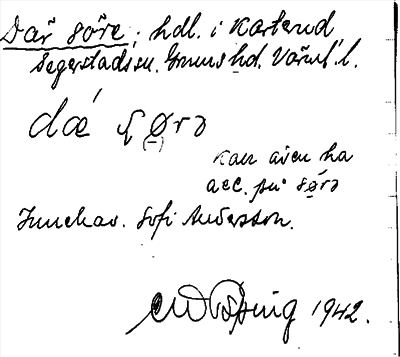 Där söre; hdl. i Karterud,
Segerstads sn. Grums hd. Värml. l.
dǽ sø̨rə
(–)
kan även ha
acc. på sørə
Innehav. Sofi Andersson.
1942.